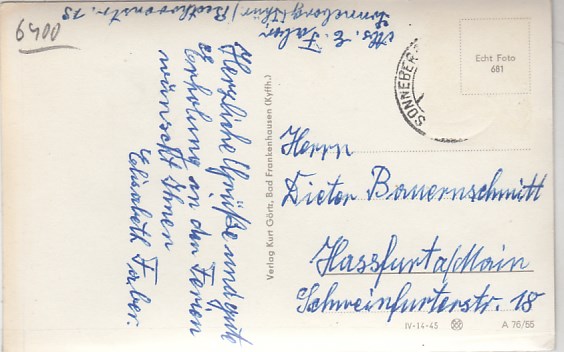 6400
Abs. E. Faber,
Sonneberg/Thür/Beethovenstr. 13
Herzliche Grüße und gute
Erholung in den Ferien
wünscht Ihnen
Elisabeth Faber
Verlag Kurt Görtz, Bad Frankenhausen (Kyffh.)
SONNEBERG
Echt Foto
681
Herrn
Dieter Bauernschmitt
Hassfurt a/Main
Schweinfurterstr. 18
IV-14-45
A 76/55